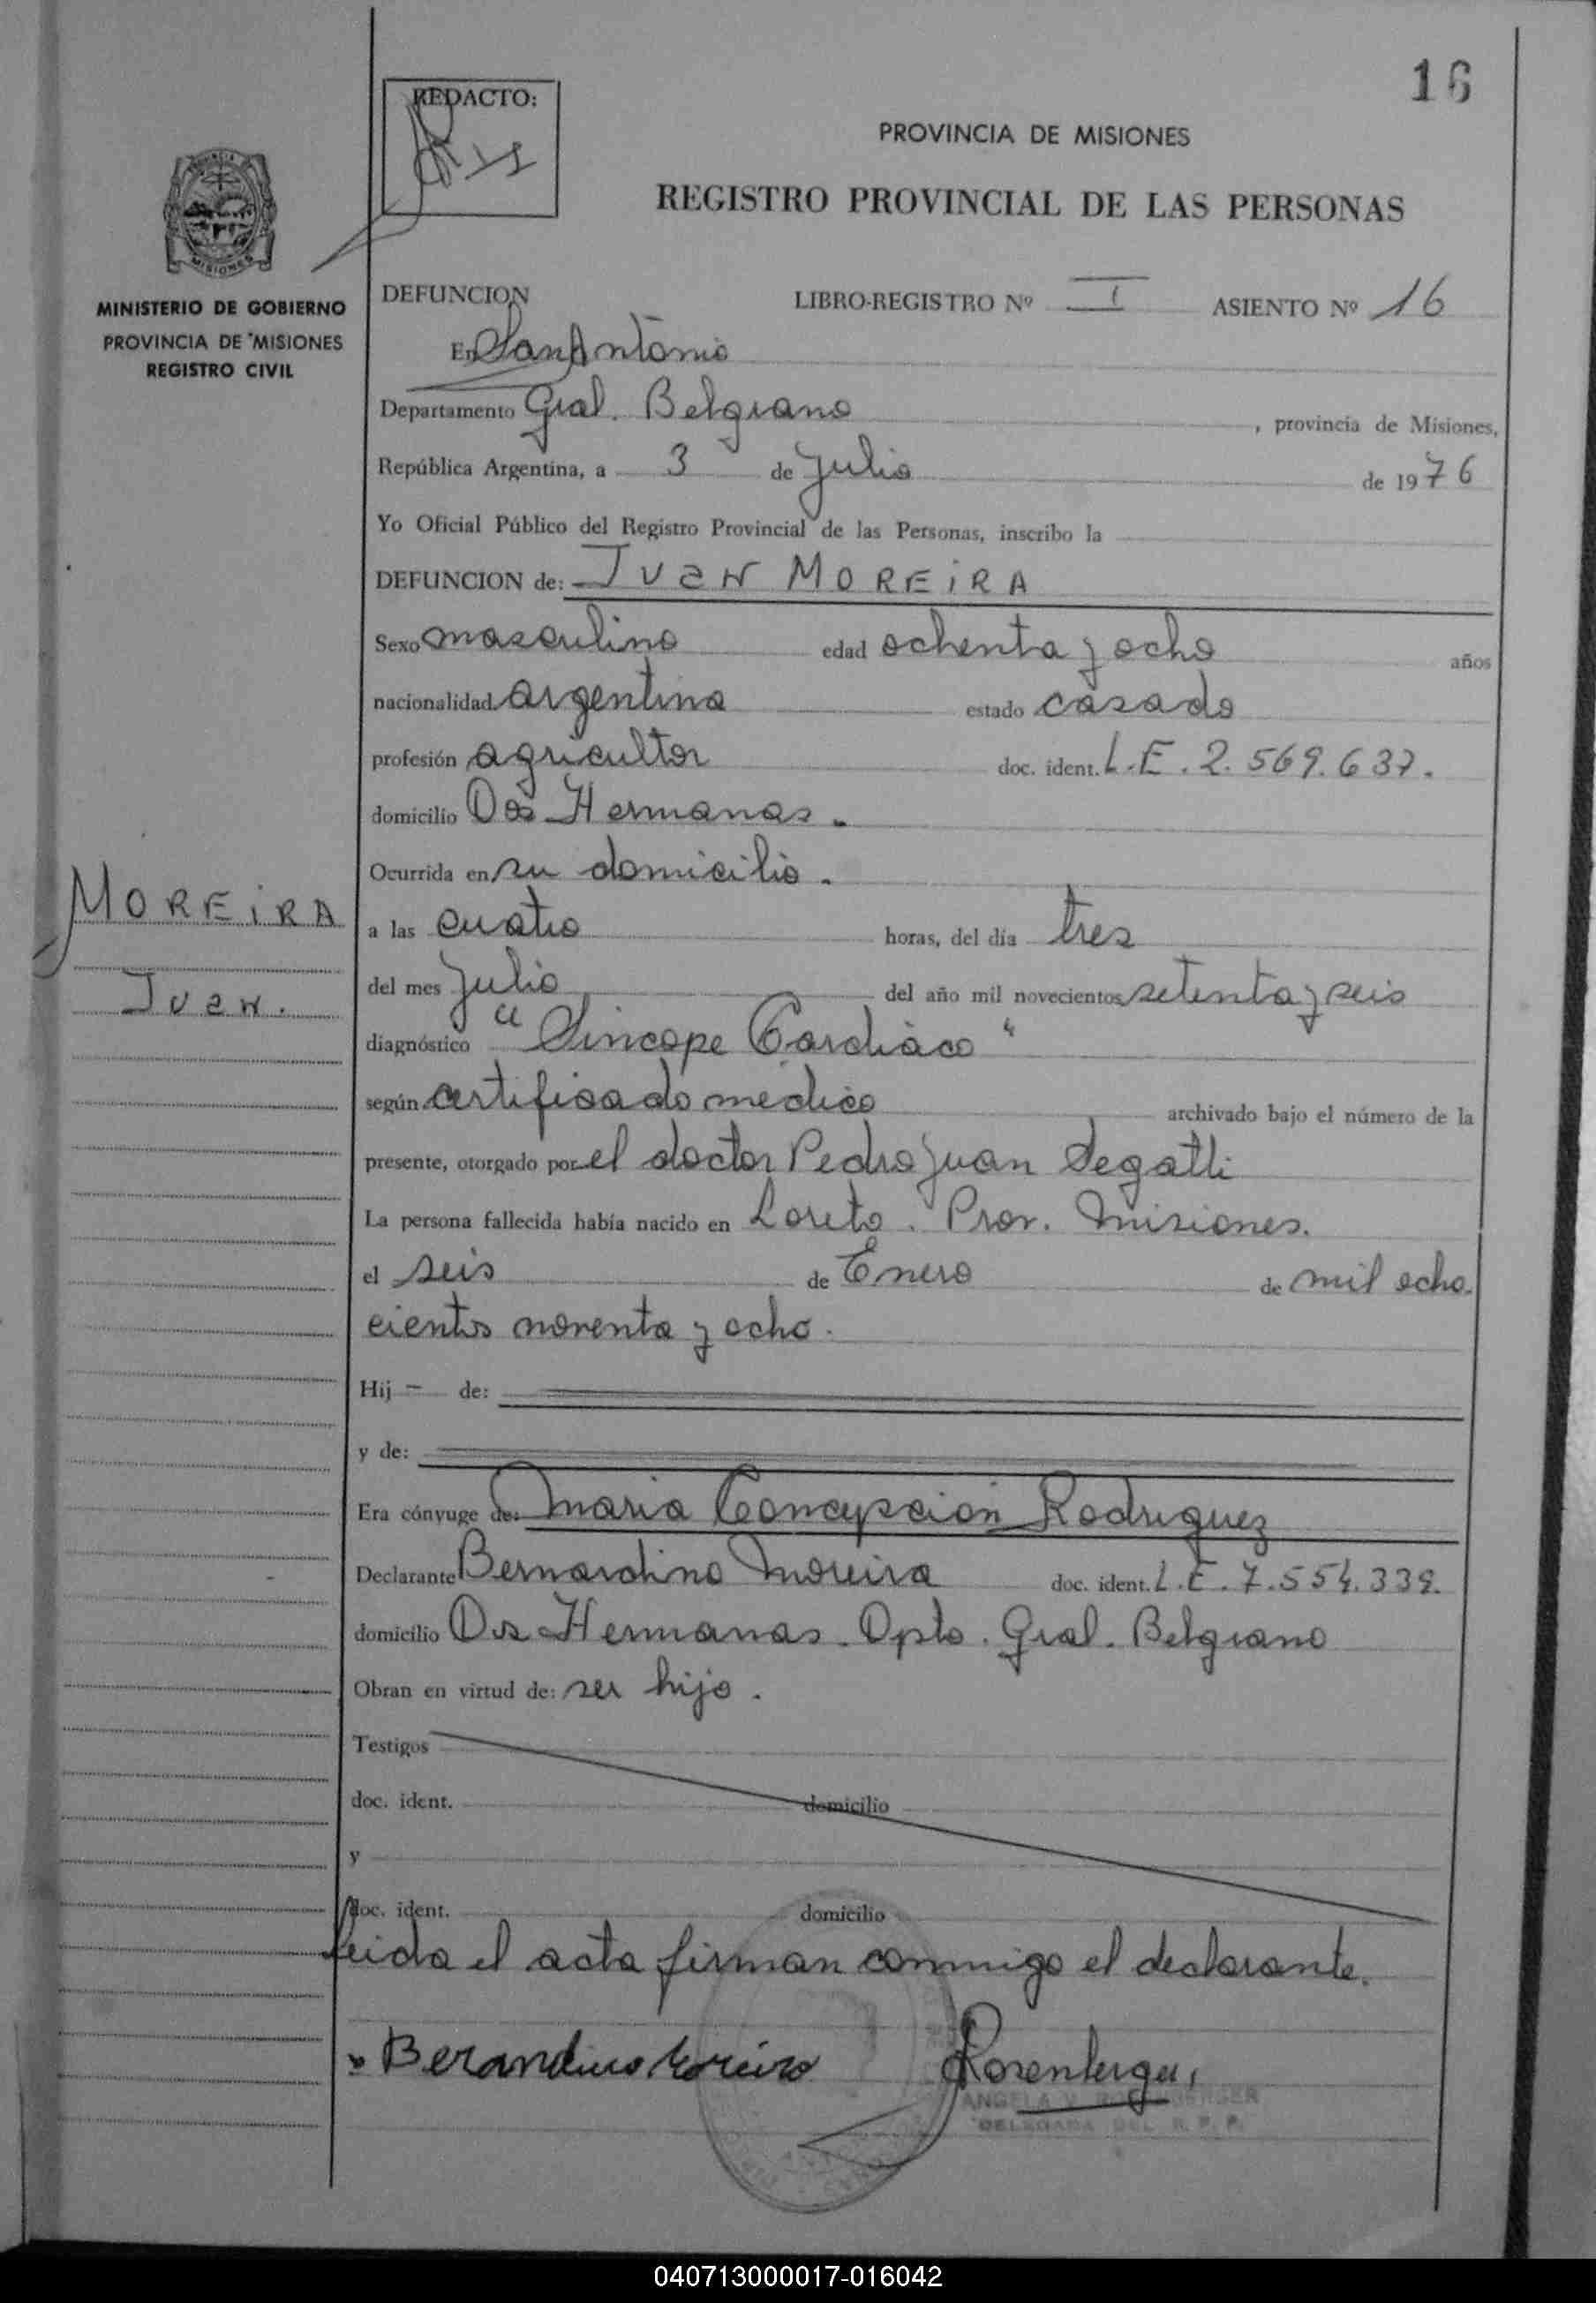 16
REDACTO:
PROVINCIA DE MISIONES
REGISTRO PROVINCIAL DE LAS PERSONAS
MISIONES
MINISTERIO DE GOBIERNO
PROVINCIA DE MISIONES
REGISTRO CIVIL
DEFUNCION LIBRO-REGISTRO Nº I ASIENTO Nº 16
En San Antonio
Departamento Gral. Belgrano, provincia de Misiones,
República Argentina, a 3 de Julio de 1976
Yo Oficial Público del Registro Provincial de las Personas, inscribo la
DEFUNCION de: Juan MOREIRA
Sexo masculino edad ochenta y ocho años
nacionalidad argentina estado casado
profesión agricultor doc. ident. L.E. 2.569.637.
domicilio Dos Hermanas.
Ocurrida en su domicilio.
MOREIRA
Juan.
a las cuatro horas, del día tres
del mes Julio del año mil novecientos setenta y seis
diagnóstico "Síncope Cardiaco"
según certificado médico archivado bajo el número de la
presente, otorgado por el doctor Pedro Juan Segatti
La persona fallecida había nacido en Loreto. Prov. Misiones.
el seis de Enero de mil ocho
cientos noventa y ocho.
Hij — de:
y de:
Era cónyuge de: Maria Concepción Rodriguez
Declarante Bernardino Moreira doc. ident. L.E. 7.554.339.
domicilio Dos Hermanas. Dpto. Gral. Belgrano
Obran en virtud de: ser hijo.
Testigos
doc. ident. domicilio
y
doc. ident. domicilio
Leida el acta firman conmigo el declarante.
Berandino Moreira Rosenberger
ANGELA V. ROSENBERGER
DELEGADA DEL R. P. P.
040713000017-016042